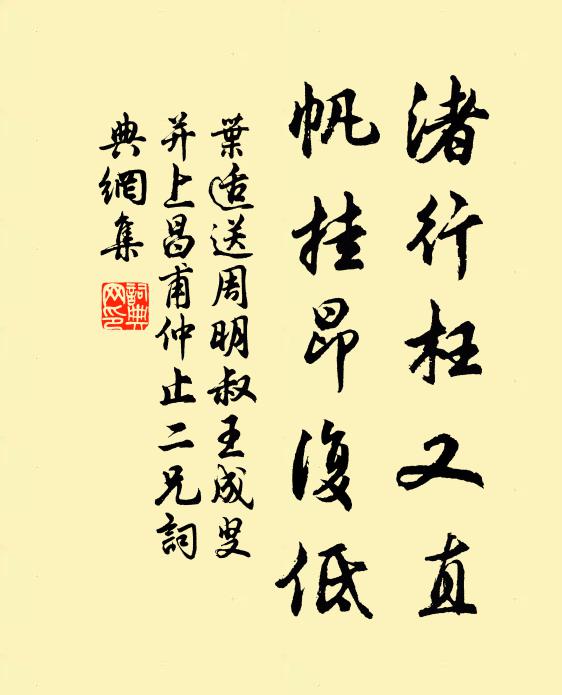 渚行枉又直
帆挂昂復低
葉适送周明叔王成叟
并上昌甫仲止二兄詞
典網集
詞典網印